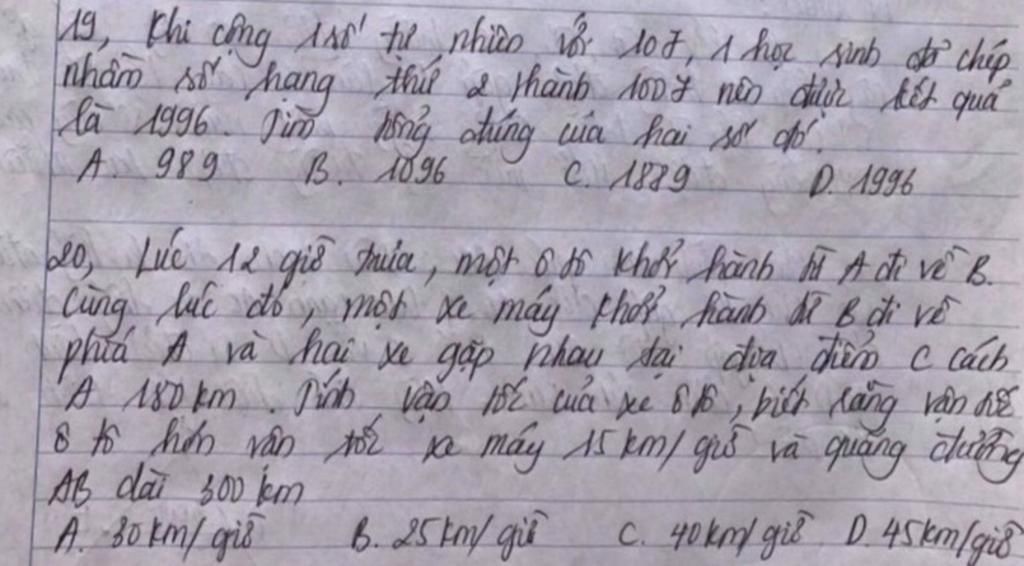 19, Khi cộng 1 số tự nhiên với 107, 1 học sinh đã chép
nhầm số hạng thứ 2 thành 1007 nên được kết quả
là 1996. Tìm tổng đúng của hai số đó.
A. 989 B. 1096 C. 1889 D. 1996
20, Lúc 12 giờ trưa, một ô tô khởi hành từ A đi về B.
Cùng lúc đó, một xe máy khởi hành từ B đi về
phía A và hai xe gặp nhau tại địa điểm C cách
A 180 km. Tính vận tốc của xe ô tô, biết rằng vận tốc
ô tô hơn vận tốc xe máy 15 km/giờ và quãng đường
AB dài 300 km
A. 30 km/giờ B. 25 km/giờ C. 40 km/giờ D. 45 km/giờ